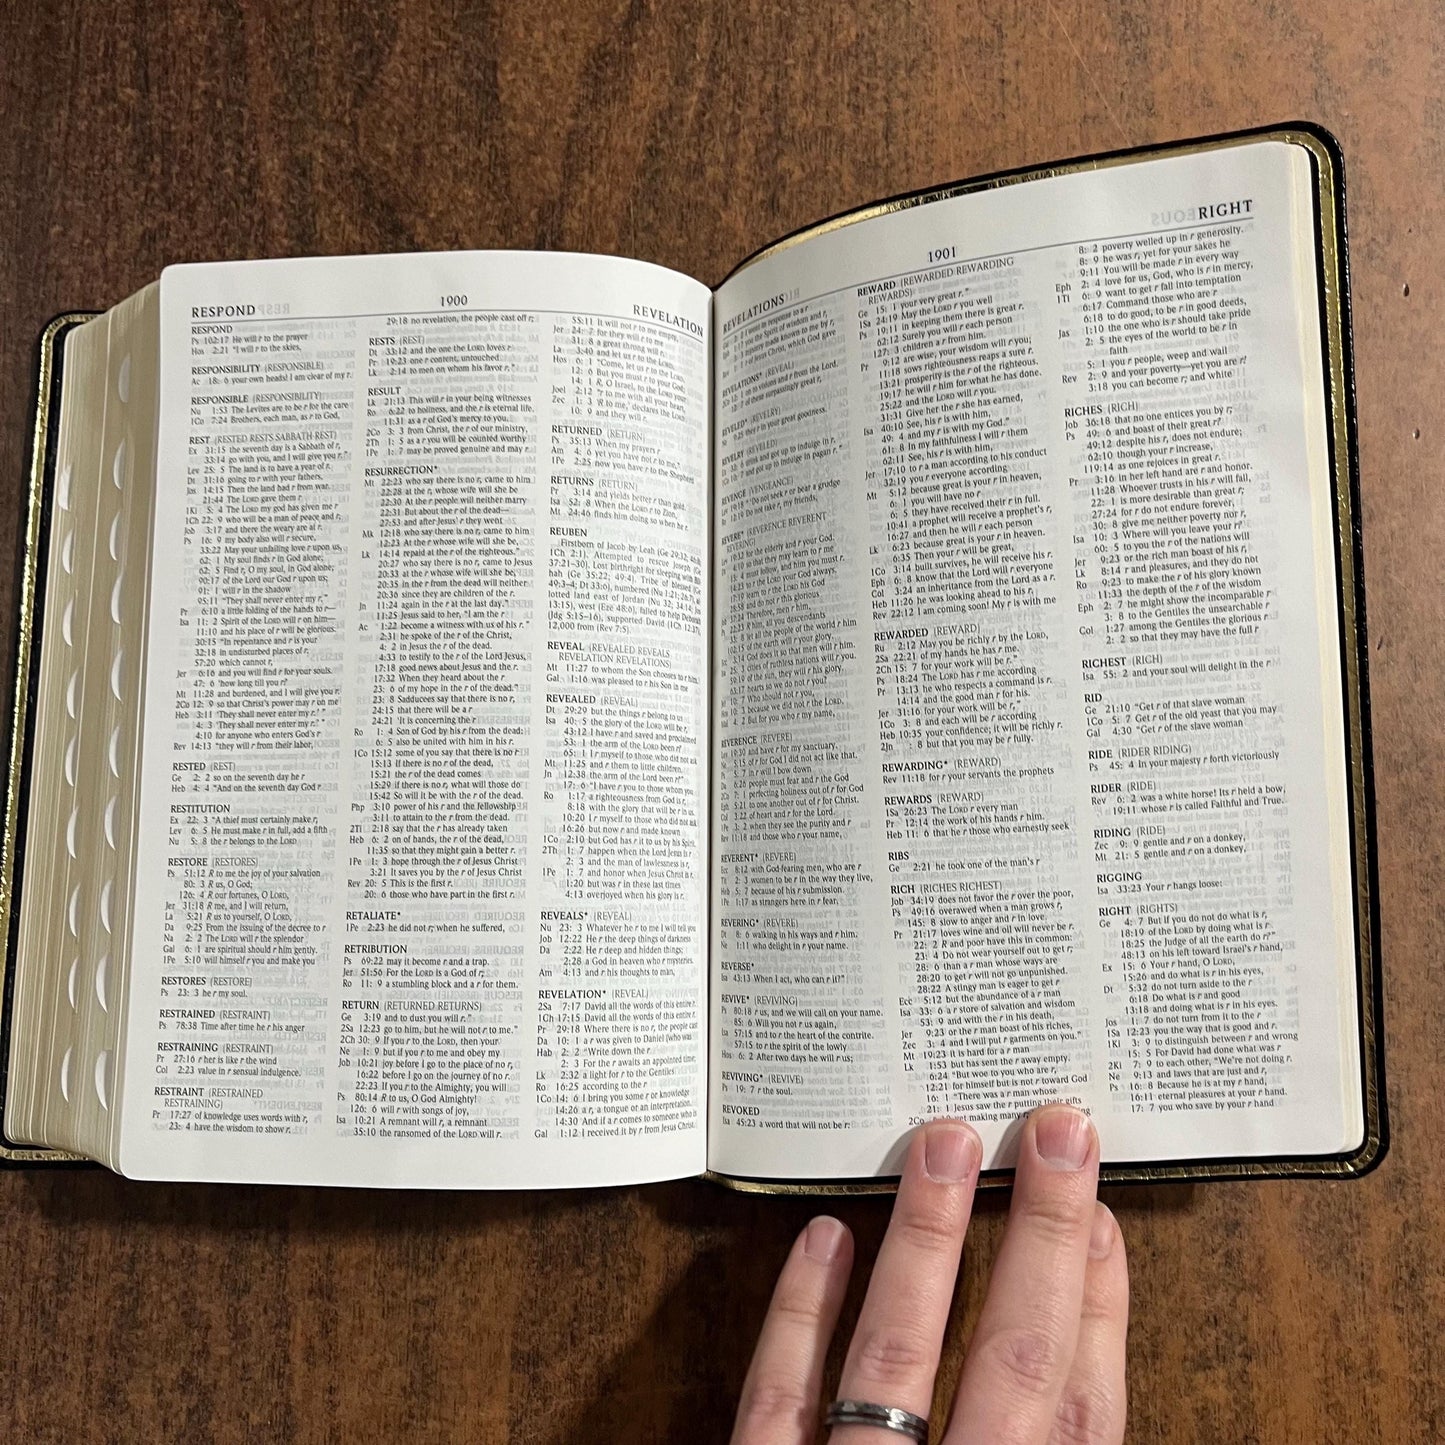 RESPOND
1900
REVELATION
RESPOND
Ps 102:17 He will r to the prayer
Hos 2:21 "I will r to the skies,
RESPONSIBILITY (RESPONSIBLE)
Ac 18: 6 your own heads! I am clear of my r.
RESPONSIBLE (RESPONSIBILITY)
Nu 1:53 The Levites are to be r for the care
1Co 7:24 Brothers, each man, as r to God,
REST (RESTED RESTS SABBATH-REST)
Ex 31:15 the seventh day is a Sabbath of r,
33:14 go with you, and I will give you r."
Lev 25: 5 The land is to have a year of r.
Dt 31:16 going to r with your fathers,
Jos 14:15 Then the land had r from war.
21:44 The LORD gave them r
1Ki 5: 4 The LORD my God has given me r
1Ch 22: 9 who will be a man of peace and r,
Job 3:17 and there the weary are at r.
Ps 16: 9 my body also will r secure,
33:22 May your unfailing love r upon us,
62: 1 My soul finds r in God alone;
62: 5 Find r, O my soul, in God alone;
90:17 of the Lord our God r upon us;
91: 1 will r in the shadow
95:11 "They shall never enter my r."
Pr 6:10 a little folding of the hands to r—
Isa 11: 2 Spirit of the LORD will r on him—
11:10 and his place of r will be glorious.
30:15 "In repentance and r is your
32:18 in undisturbed places of r.
57:20 which cannot r,
Jer 6:16 and you will find r for your souls.
47: 6 'how long till you r?
Mt 11:28 and burdened, and I will give you r.
2Co 12: 9 so that Christ's power may r on me
Heb 3:11 'They shall never enter my r.' "
4: 3 'They shall never enter my r.' "
4:10 for anyone who enters God's r
Rev 14:13 "they will r from their labor,
RESTED (REST)
Ge 2: 2 so on the seventh day he r
Heb 4: 4 "And on the seventh day God r
RESTITUTION
Ex 22: 3 "A thief must certainly make r,
Lev 6: 5 He must make r in full, add a fifth
Nu 5: 8 the r belongs to the LORD
RESTORE (RESTORES)
Ps 51:12 R to me the joy of your salvation
80: 3 R us, O God;
126: 4 R our fortunes, O LORD,
Jer 31:18 R me, and I will return,
La 5:21 R us to yourself, O LORD,
Da 9:25 From the issuing of the decree to r
Na 2: 2 The LORD will r the splendor
Gal 6: 1 are spiritual should r him gently.
1Pe 5:10 will himself r you and make you
RESTORES (RESTORE)
Ps 23: 3 he r my soul.
RESTRAINED (RESTRAINT)
Ps 78:38 Time after time he r his anger
RESTRAINING (RESTRAINT)
Pr 27:16 r her is like r the wind
Col 2:23 value in r sensual indulgence.
RESTRAINT (RESTRAINED
RESTRAINING)
Pr 17:27 of knowledge uses words with r,
23: 4 have the wisdom to show r.
29:18 no revelation, the people cast off r;
RESTS (REST)
Dt 33:12 and the one the LORD loves r
Pr 19:23 one r content, untouched
Lk 2:14 to men on whom his favor r."
RESULT
Lk 21:13 This will r in your being witnesses
Ro 6:22 to holiness, and the r is eternal life.
11:31 as a r of God's mercy to you.
2Co 3: 3 from Christ, the r of our ministry,
2Th 1: 5 as a r you will be counted worthy
1Pe 1: 7 may be proved genuine and may r
RESURRECTION*
Mt 22:23 who say there is no r, came to him
22:28 at the r, whose wife will she be
22:30 At the r people will neither marry
22:31 But about the r of the dead—
27:53 and after Jesus' r they went
Mk 12:18 who say there is no r, came to him
12:23 At the r whose wife will she be,
Lk 14:14 repaid at the r of the righteous."
20:27 who say there is no r, came to Jesus
20:33 at the r whose wife will she be,
20:35 in the r from the dead will neither
20:36 since they are children of the r.
Jn 11:24 again in the r at the last day."
11:25 Jesus said to her, "I am the r
Ac 1:22 become a witness with us of his r."
2:31 he spoke of the r of the Christ,
4: 2 in Jesus the r of the dead.
4:33 to testify to the r of the Lord Jesus,
17:18 good news about Jesus and the r.
17:32 When they heard about the r
23: 6 of my hope in the r of the dead."
23: 8 Sadducees say that there is no r,
24:15 that there will be a r
24:21 'It is concerning the r
Ro 1: 4 Son of God by his r from the dead:
6: 5 also be united with him in his r.
1Co 15:12 some of you say that there is no r
15:13 If there is no r of the dead,
15:21 the r of the dead comes
15:29 if there is no r, what will those do
15:42 So will it be with the r of the dead.
Php 3:10 power of his r and the fellowship
3:11 to attain to the r from the dead.
2Ti 2:18 say that the r has already taken
Heb 6: 2 on of hands, the r of the dead,
11:35 so that they might gain a better r.
1Pe 1: 3 hope through the r of Jesus Christ
3:21 It saves you by the r of Jesus Christ
Rev 20: 5 This is the first r.
20: 6 those who have part in the first r.
RETALIATE*
1Pe 2:23 he did not r; when he suffered,
RETRIBUTION
Ps 69:22 may it become r and a trap.
Jer 51:56 For the LORD is a God of r;
Ro 11: 9 a stumbling block and a r for them.
RETURN (RETURNED RETURNS)
Ge 3:19 and to dust you will r."
2Sa 12:23 go to him, but he will not r to me."
2Ch 30: 9 If you r to the LORD, then your
Ne 1: 9 but if you r to me and obey my
Job 10:21 joy before I go to the place of no r,
16:22 before I go on the journey of no r.
22:23 If you r to the Almighty, you will
Ps 80:14 R to us, O God Almighty!
126: 6 will r with songs of joy,
Isa 10:21 A remnant will r, a remnant
35:10 the ransomed of the LORD will r.
55:11 It will not r to me empty,
Jer 24: 7 for they will r to me
31: 8 a great throng will r.
La 3:40 and let us r to the LORD.
6: 1 "Come, let us r to the LORD.
12: 6 But you must r to your God;
14: 1 R, O Israel, to the LORD your
Joel 2:12 "r to me with all your heart,
Zec 1: 3 'R to me,' declares the LORD
10: 9 and they will r.
RETURNED (RETURN)
Ps 35:13 When my prayers r
Am 4: 6 yet you have not r to me,"
1Pe 2:25 now you have r to the Shepherd
RETURNS (RETURN)
Pr 3:14 and yields better r than gold.
Isa 52: 8 When the LORD r to Zion,
Mt 24:46 finds him doing so when he r.
REUBEN
Firstborn of Jacob by Leah (Ge 29:32; 46:8;
1Ch 2:1). Attempted to rescue Joseph (Ge
37:21–30). Lost birthright for sleeping with Bil-
hah (Ge 35:22; 49:4). Tribe of blessed (Ge
49:3–4; Dt 33:6), numbered (Nu 1:21; 26:7), al-
lotted land east of Jordan (Nu 32; 34:14; Jos
13:15), west (Eze 48:6), failed to help Deborah
(Jdg 5:15–16), supported David (1Ch 12:37),
12,000 from (Rev 7:5).
REVEAL (REVEALED REVEALS
REVELATION REVELATIONS)
Mt 11:27 to whom the Son chooses to r him.
Gal 1:16 was pleased to r his Son in me
REVEALED (REVEAL)
Dt 29:29 but the things r belong to us
Isa 40: 5 the glory of the LORD will be r,
43:12 I have r and saved and proclaimed
53: 1 the arm of the LORD been r?
65: 1 I r myself to those who did not ask
Mt 11:25 and r them to little children.
Jn 12:38 the arm of the Lord been r?"
17: 6 "I have r you to those whom you
Ro 1:17 a righteousness from God is r,
8:18 with the glory that will be r in us.
10:20 I r myself to those who did not ask
16:26 but now r and made known
1Co 2:10 but God has r it to us by his Spirit.
2Th 1: 7 happen when the Lord Jesus is r
2: 3 and the man of lawlessness is r,
1Pe 1: 7 and honor when Jesus Christ is r.
1:20 but was r in these last times
4:13 overjoyed when his glory is r.
REVEALS* (REVEAL)
Nu 23: 3 Whatever he r to me I will tell you
Job 12:22 He r the deep things of darkness
Da 2:22 He r deep and hidden things;
2:28 a God in heaven who r mysteries.
Am 4:13 and r his thoughts to man,
REVELATION* (REVEAL)
2Sa 7:17 David all the words of this entire r.
1Ch 17:15 David all the words of this entire r.
Pr 29:18 Where there is no r, the people cast
Da 10: 1 a r was given to Daniel (who was
Hab 2: 2 "Write down the r
2: 3 For the r awaits an appointed time;
Lk 2:32 a light for r to the Gentiles
Ro 16:25 according to the r
1Co 14: 6 I bring you some r or knowledge
14:26 a r, a tongue or an interpretation.
14:30 And if a r comes to someone who is
Gal 1:12 I received it by r from Jesus Christ.
REVELATIONS
1901
RIGHT
REVELATIONS* (REVEAL)
REVELRY (REVELED)
REVENGE (VENGEANCE)
REVERENCE (REVERE)
REVERENT* (REVERE)
Ecc 8:12 with God-fearing men, who are r
Tit 2: 3 women to be r in the way they live,
Heb 5: 7 because of his r submission.
1Pe 1:17 as strangers here in r fear.
REVERING* (REVERE)
Dt 8: 6 walking in his ways and r him.
Ne 1:11 who delight in r your name.
REVERSE*
Isa 43:13 When I act, who can r it?"
REVIVE* (REVIVING)
Ps 80:18 r us, and we will call on your name.
85: 6 Will you not r us again,
Isa 57:15 and to r the heart of the contrite.
57:15 to r the spirit of the lowly
Hos 6: 2 After two days he will r us;
REVIVING* (REVIVE)
Ps 19: 7 r the soul.
REVOKED
Isa 45:23 a word that will not be r:
REWARD (REWARDED REWARDING
REWARDS)
Ge 15: 1 your very great r."
1Sa 24:19 May the LORD r you well
Ps 19:11 in keeping them there is great r.
62:12 Surely you will r each person
127: 3 children a r from him.
Pr 9:12 are wise, your wisdom will r you;
11:18 sows righteousness reaps a sure r.
13:21 prosperity is the r of the righteous.
19:17 he will r him for what he has done.
25:22 and the LORD will r you.
31:31 Give her the r she has earned,
Isa 40:10 See, his r is with him,
49: 4 and my r is with my God."
61: 8 In my faithfulness I will r them
62:11 See, his r is with him,
Jer 17:10 to r a man according to his conduct
32:19 you r everyone according
Mt 5:12 because great is your r in heaven,
6: 1 you will have no r
6: 5 they have received their r in full.
10:41 a prophet will receive a prophet's r,
16:27 and then he will r each person
Lk 6:23 because great is your r in heaven.
6:35 Then your r will be great,
1Co 3:14 built survives, he will receive his r.
Eph 6: 8 know that the Lord will r everyone
Col 3:24 an inheritance from the Lord as a r.
Heb 11:26 he was looking ahead to his r.
Rev 22:12 I am coming soon! My r is with me
REWARDED (REWARD)
Ru 2:12 May you be richly r by the LORD,
2Sa 22:21 of my hands he has r me.
2Ch 15: 7 for your work will be r."
Ps 18:24 The LORD has r me according
Pr 13:13 he who respects a command is r.
14:14 and the good man r for his.
Jer 31:16 for your work will be r,"
1Co 3: 8 and each will be r according
Heb 10:35 your confidence; it will be richly r.
2Jn : 8 but that you may be r fully.
REWARDING* (REWARD)
Rev 11:18 for r your servants the prophets
REWARDS (REWARD)
1Sa 26:23 The LORD r every man
Pr 12:14 the work of his hands r him.
Heb 11: 6 that he r those who earnestly seek
RIBS
Ge 2:21 he took one of the man's r
RICH (RICHES RICHEST)
Job 34:19 does not favor the r over the poor,
Ps 49:16 overawed when a man grows r,
145: 8 slow to anger and r in love.
Pr 21:17 loves wine and oil will never be r.
22: 2 R and poor have this in common:
23: 4 Do not wear yourself out to get r;
28: 6 than a r man whose ways are
28:20 to get r will not go unpunished.
28:22 A stingy man is eager to get r
Ecc 5:12 but the abundance of a r man
Isa 33: 6 a r store of salvation and wisdom
53: 9 and with the r in his death,
Jer 9:23 or the r man boast of his riches,
Zec 3: 4 and I will put r garments on you."
Mt 19:23 it is hard for a r man
Lk 1:53 but has sent the r away empty.
6:24 "But woe to you who are r,
12:21 for himself but is not r toward God
16: 1 "There was a r man whose
21: 1 Jesus saw the r putting their gifts
2Co
8: 2 poverty welled up in r generosity.
8: 9 he was r, yet for your sakes he
9:11 You will be made r in every way
Eph 2: 4 love for us, God, who is r in mercy,
1Ti 6: 9 want to get r fall into temptation
6:17 Command those who are r
6:18 to do good, to be r in good deeds,
Jas 1:10 the one who is r should take pride
2: 5 the eyes of the world to be r in
faith
5: 1 you r people, weep and wail
Rev 2: 9 and your poverty—yet you are r!
3:18 you can become r; and white
RICHES (RICH)
Job 36:18 that no one entices you by r;
Ps 49: 6 and boast of their great r?
49:12 despite his r, does not endure;
62:10 though your r increase,
119:14 as one rejoices in great r.
Pr 3:16 in her left hand are r and honor.
11:28 Whoever trusts in his r will fall,
22: 1 is more desirable than great r;
27:24 for r do not endure forever,
30: 8 give me neither poverty nor r,
Isa 10: 3 Where will you leave your r?
60: 5 to you the r of the nations will
Jer 9:23 or the rich man boast of his r,
Lk 8:14 r and pleasures, and they do not
Ro 9:23 to make the r of his glory known
11:33 the depth of the r of the wisdom
Eph 2: 7 he might show the incomparable r
3: 8 to the Gentiles the unsearchable r
Col 1:27 among the Gentiles the glorious r
2: 2 so that they may have the full r
RICHEST (RICH)
Isa 55: 2 and your soul will delight in the r
RID
Ge 21:10 "Get r of that slave woman
1Co 5: 7 Get r of the old yeast that you may
Gal 4:30 "Get r of the slave woman
RIDE (RIDER RIDING)
Ps 45: 4 In your majesty r forth victoriously
RIDER (RIDE)
Rev 6: 2 was a white horse! Its r held a bow,
19:11 whose r is called Faithful and True.
RIDING (RIDE)
Zec 9: 9 gentle and r on a donkey,
Mt 21: 5 gentle and r on a donkey,
RIGGING
Isa 33:23 Your r hangs loose:
RIGHT (RIGHTS)
Ge 4: 7 But if you do not do what is r,
18:19 of the LORD by doing what is r
18:25 the Judge of all the earth do r?"
48:13 on his left toward Israel's r hand,
Ex 15: 6 Your r hand, O LORD,
15:26 and do what is r in his eyes,
Dt 5:32 do not turn aside to the r
6:18 Do what is r and good
13:18 and doing what is r in his eyes.
Jos 1: 7 do not turn from it to the r
1Sa 12:23 you the way that is good and r.
1Ki 3: 9 to distinguish between r and wrong
15: 5 For David had done what was r
2Ki 7: 9 to each other, "We're not doing r.
Ne 9:13 and laws that are just and r,
Ps 16: 8 Because he is at my r hand,
16:11 eternal pleasures at your r hand.
17: 7 you who save by your r hand